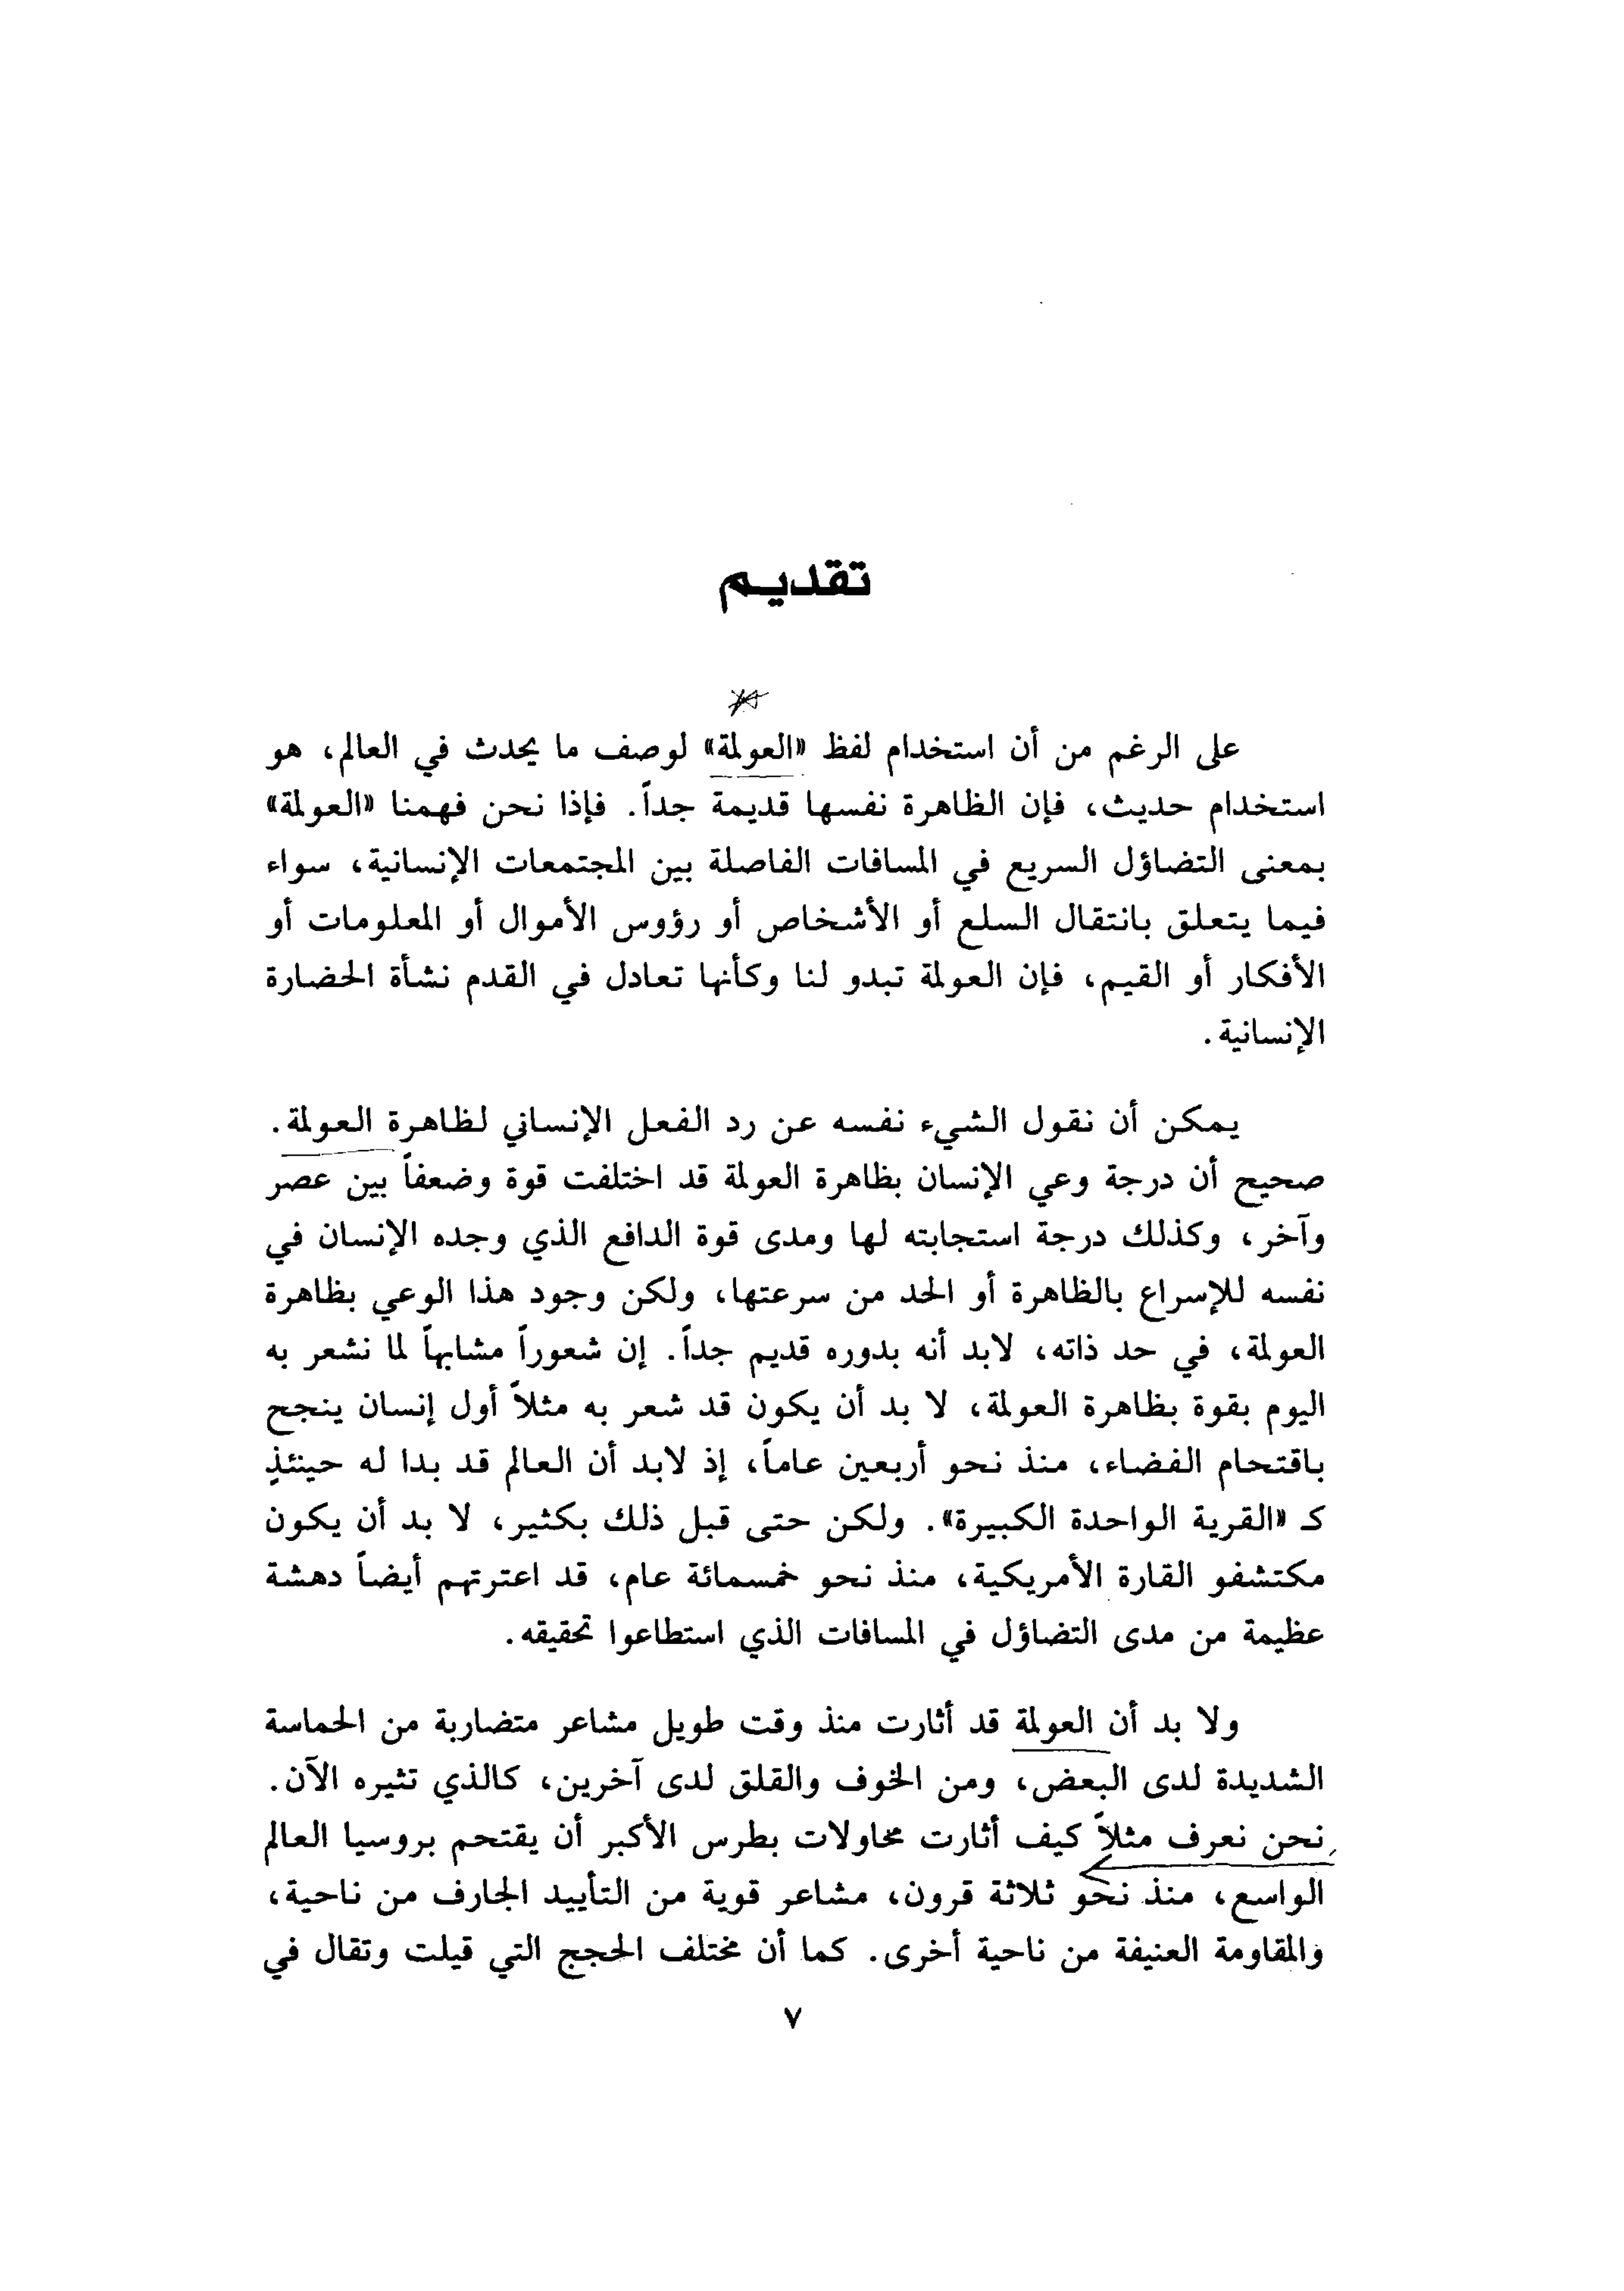 تقديم
على الرغم من أن استخدام لفظ «العولمة» لوصف ما يحدث في العالم، هو
استخدام حديث، فإن الظاهرة نفسها قديمة جداً. فإذا نحن فهمنا «العولمة»
بمعنى التضاؤل السريع في المسافات الفاصلة بين المجتمعات الإنسانية، سواء
فيما يتعلق بانتقال السلع أو الأشخاص أو رؤوس الأموال أو المعلومات أو
الأفكار أو القيم، فإن العولمة تبدو لنا وكأنها تعادل في القدم نشأة الحضارة
الإنسانية.
يمكن أن نقول الشيء نفسه عن رد الفعل الإنساني لظاهرة العولمة.
صحيح أن درجة وعي الإنسان بظاهرة العولمة قد اختلفت قوة وضعفاً بين عصر
وآخر، وكذلك درجة استجابته لها ومدى قوة الدافع الذي وجده الإنسان في
نفسه للإسراع بالظاهرة أو الحد من سرعتها، ولكن وجود هذا الوعي بظاهرة
العولمة، في حد ذاته، لابد أنه بدوره قديم جداً. إن شعوراً مشابهاً لما نشعر به
اليوم بقوة بظاهرة العولمة، لا بد أن يكون قد شعر به مثلاً أول إنسان ينجح
باقتحام الفضاء، منذ نحو أربعين عاماً، إذ لابد أن العالم قد بدا له حينئذٍ
كـ «القرية الواحدة الكبيرة». ولكن حتى قبل ذلك بكثير، لا بد أن يكون
مكتشفو القارة الأمريكية، منذ نحو خمسمائة عام، قد اعترتهم أيضاً دهشة
عظيمة من مدى التضاؤل في المسافات الذي استطاعوا تحقيقه.
ولا بد أن العولمة قد أثارت منذ وقت طويل مشاعر متضاربة من الحماسة
الشديدة لدى البعض، ومن الخوف والقلق لدى آخرين، كالذي تثيره الآن.
نحن نعرف مثلاً كيف أثارت محاولات بطرس الأكبر أن يقتحم بروسيا العالم
الواسع، منذ نحو ثلاثة قرون، مشاعر قوية من التأييد الجارف من ناحية،
والمقاومة العنيفة من ناحية أخرى. كما أن مختلف الحجج التي قيلت وتقال في
٧